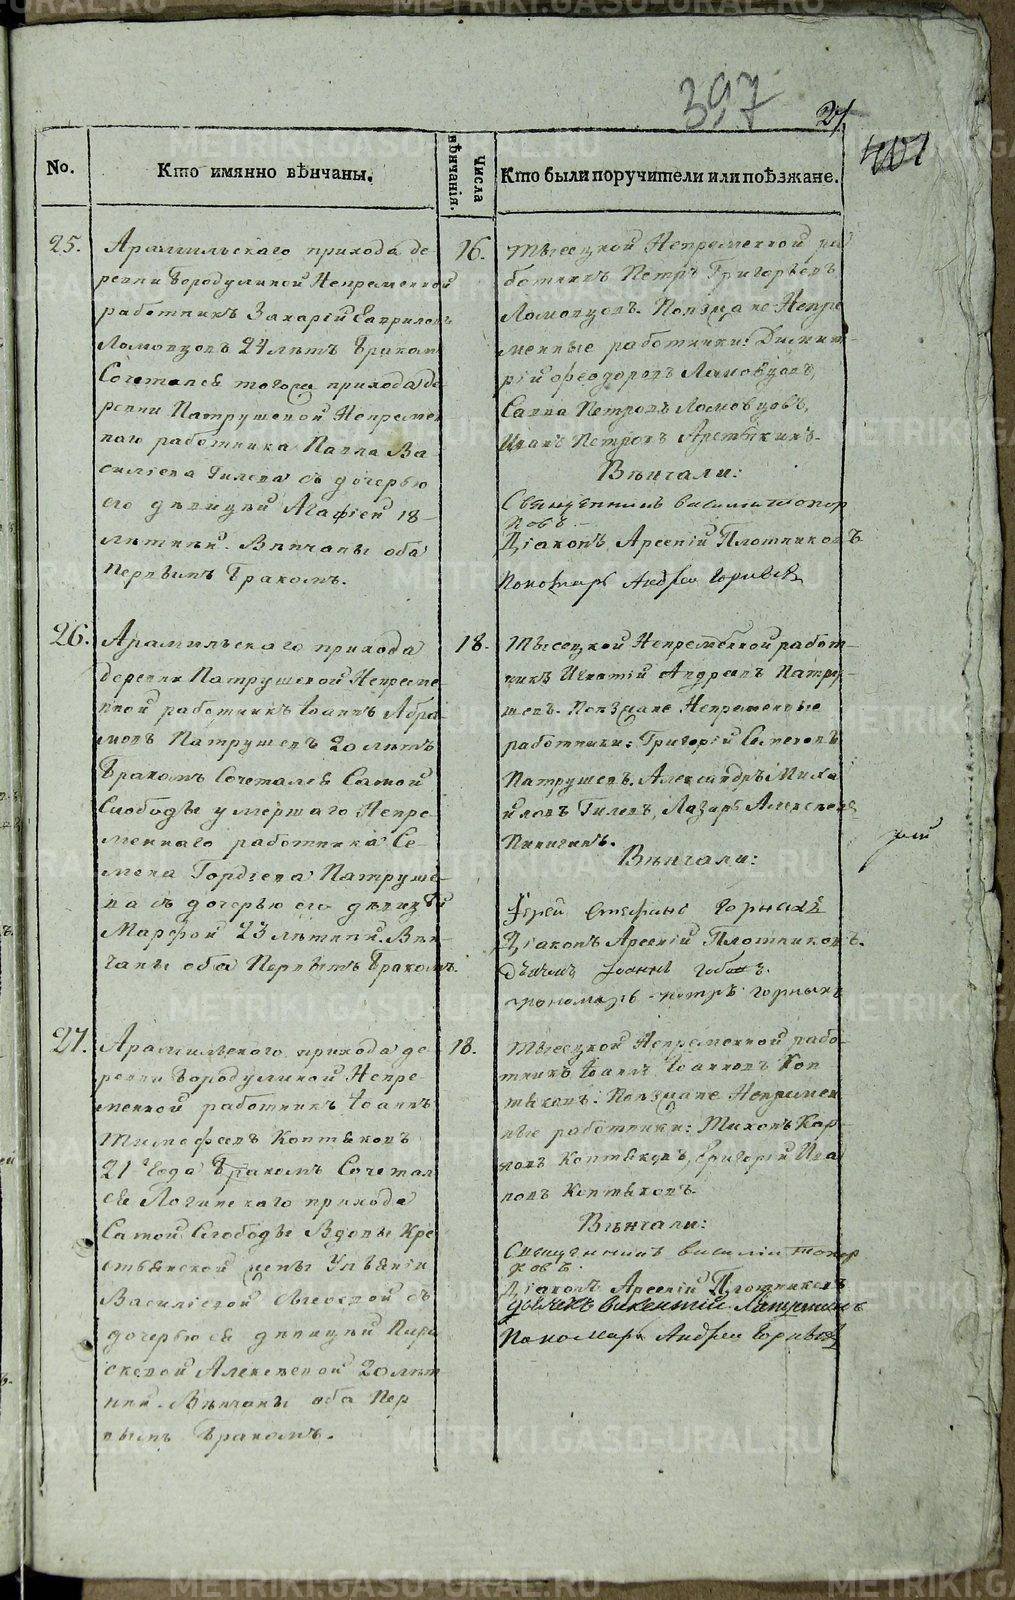 397
21.
401
No.
Кто имянно вѣнчаны.
Числа вѣнчанія.
Кто были поручители или поѣзжане.
25.
Арамильскаго прихода де
ревни Бородулиной Непременной
работникъ Захарій Гавриловъ
Ломовцовъ 24 лѣтъ бракомъ
Сочетался тогожъ прихода де
ревни Патрушевой Непремен
наго работника Павла Ва
силіева Гилева съ дочерью
его дѣвицей Агафіей 18
лѣтней. Вѣнчаны оба
первымъ бракомъ.
16.
Тысецкой Непременной ра
ботникъ Петръ Григорьевъ
Ломовцовъ. Поѣзжане Непре
менные работники: Димит
рій Феодоровъ Ламовцовъ,
Савва Петровъ Ломовцовъ,
Иванъ Петровъ
Вѣнчали:
Священникъ Василій Топор
ковъ.
Діаконъ Арсеній Плотниковъ
Пономарь Андрей Горныхъ
26.
Арамильскаго прихода
деревни Патрушевой Непреме
нной работникъ Іоаннъ Абра
мовъ Патрушевъ 20 лѣтъ
бракомъ Сочетался Самой
Слободы умершаго Непре
меннаго работника Се
мена Гордѣева Патруше
ва съ дочерью его дѣвицей
Марфой 23 лѣтней. Вѣн
чаны оба Первымъ бракомъ.
18.
Тысецкой Непременной работ
никъ Игнатій Андреевъ Патру
шевъ. Поѣзжане Непременные
работники: Григорій Семеновъ
Патрушевъ, Александръ Миха
йловъ Гилевъ, Лазарь Алексѣевъ
Пинигинъ.
Вѣнчали:
Іерей Стефанъ Горныхъ
Діаконъ Арсеній Плотниковъ.
Дьячокъ Іоаннъ
пономарь Петръ Горныхъ
27.
Арамильскаго прихода де
ревни Бородулиной Непре
менной работникъ Іоаннъ
Тимофеевъ Коптяковъ
21 года бракомъ Сочетал
ся Логиновскаго прихода
Самой Слободы Вдовы Кре
стьянской жены Ульяніи
Василіевой съ
дочерью ея дѣвицей Пара
скевой Алексѣевой 20 лѣт
ней. Вѣнчаны оба Пер
вымъ бракомъ.
18.
Тысецкой Непременной рабо
тникъ Іоаннъ Іоанновъ Коп
тяковъ. Поѣзжане Непремен
ные работники: Тихонъ Кар
повъ Коптяковъ, Григорій Ива
новъ Коптяковъ.
Вѣнчали:
Священникъ Василій Топор
ковъ.
Діаконъ Арсеній Плотниковъ
Дьячекъ Викентій
Пономарь Андрей Горныхъ
METRIKI.GASO-URAL.RU